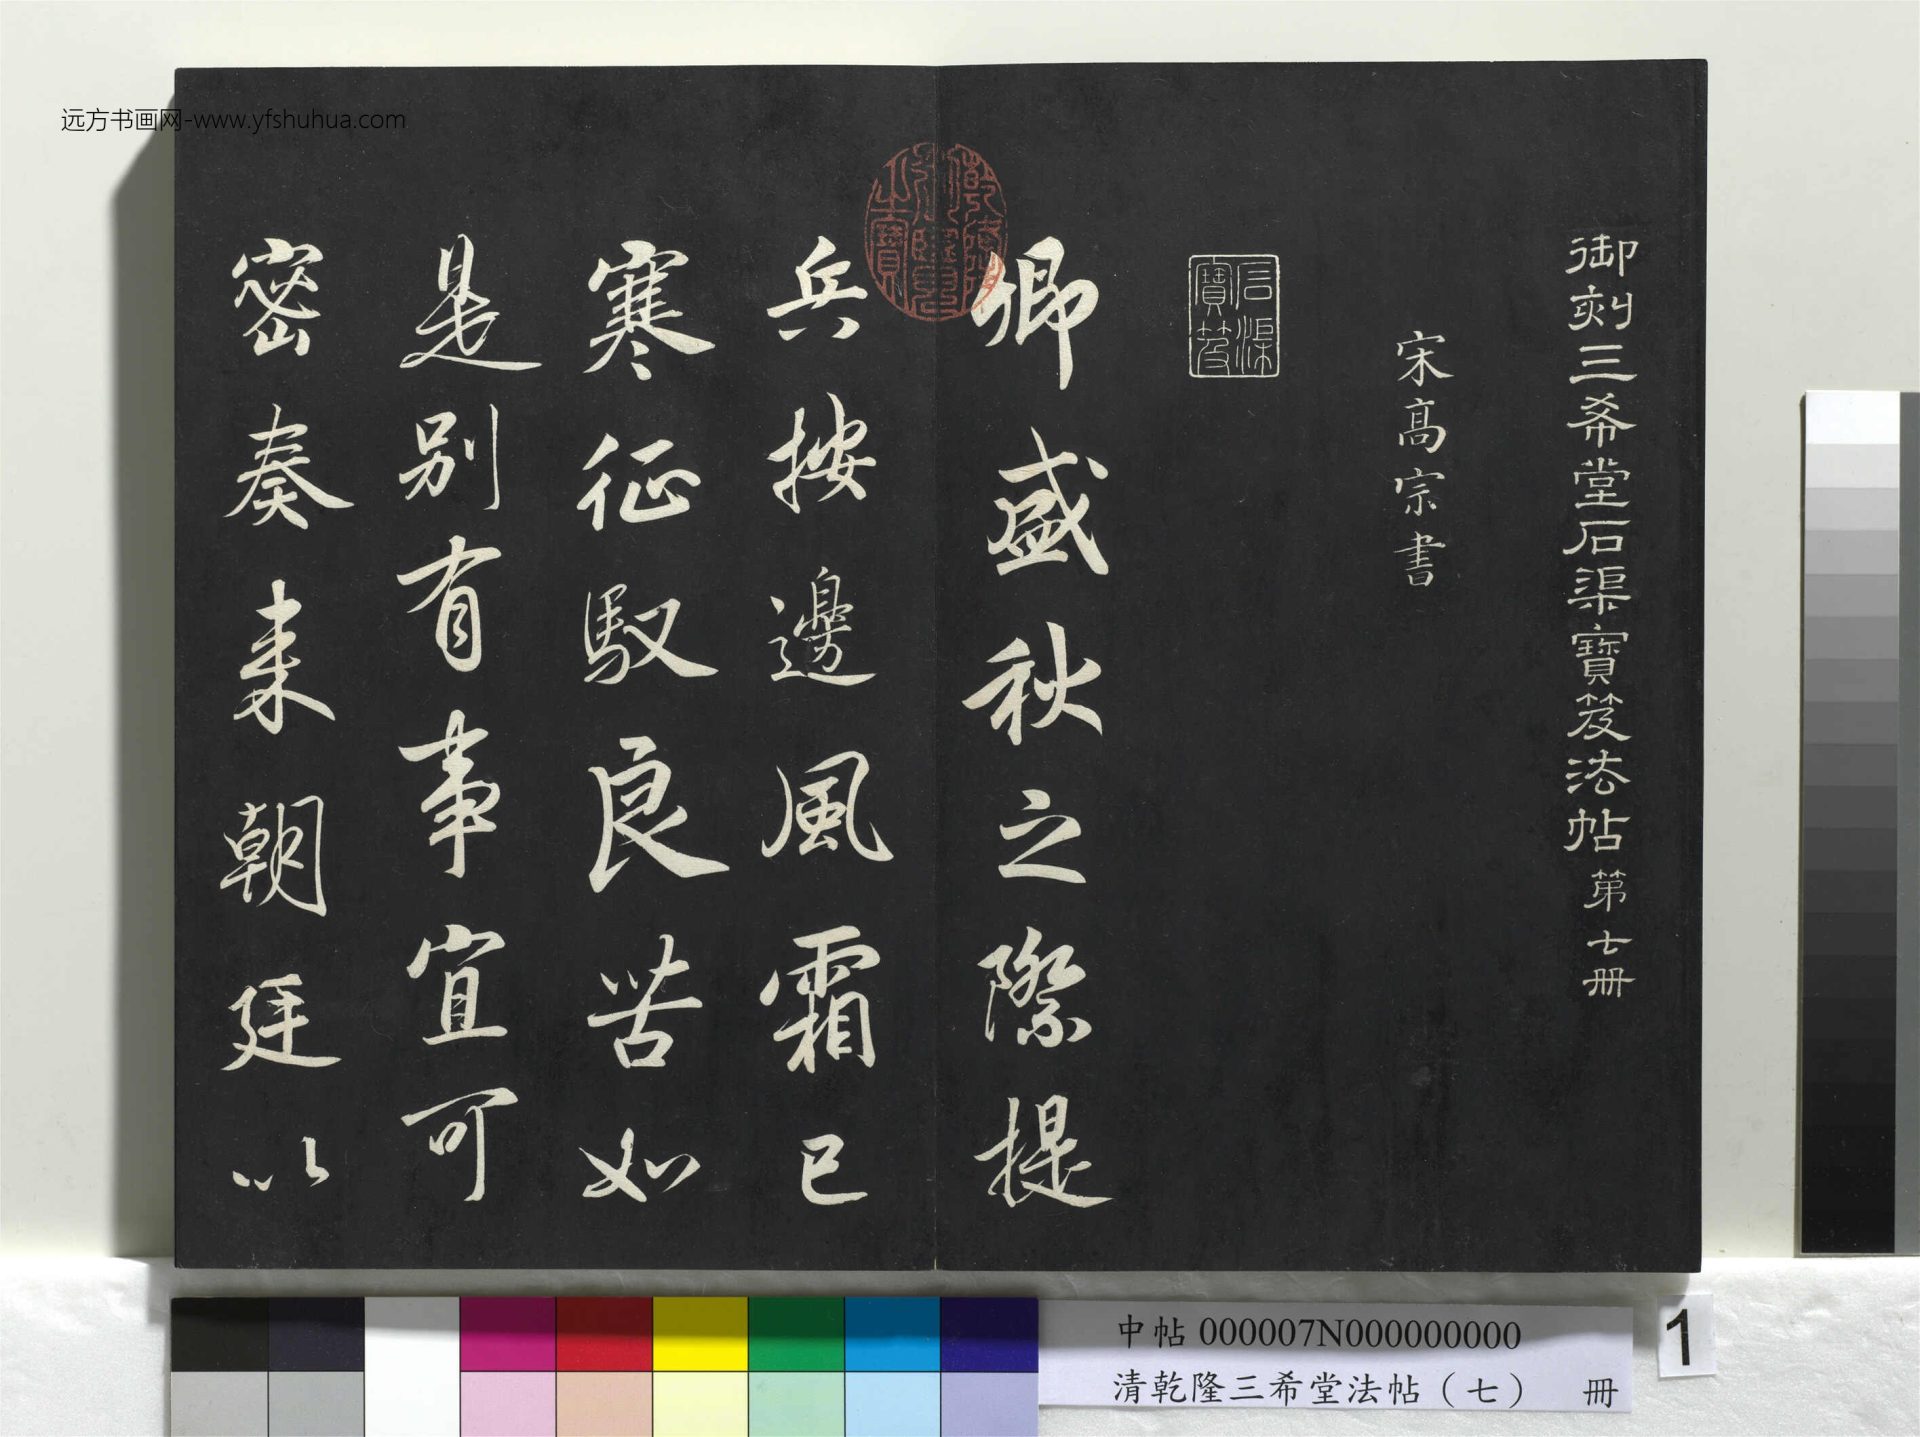 远方书画网-www.yfshuhua.com
御刻三希堂石渠寶笈法帖第七冊
宋高宗書
石渠寶笈
卿盛秋之際提
兵按邊風霜已
寒征馭良苦如
是别有事宜可
密奏来朝廷以
中帖 000007N000000000
清乾隆三希堂法帖（七） 冊
1